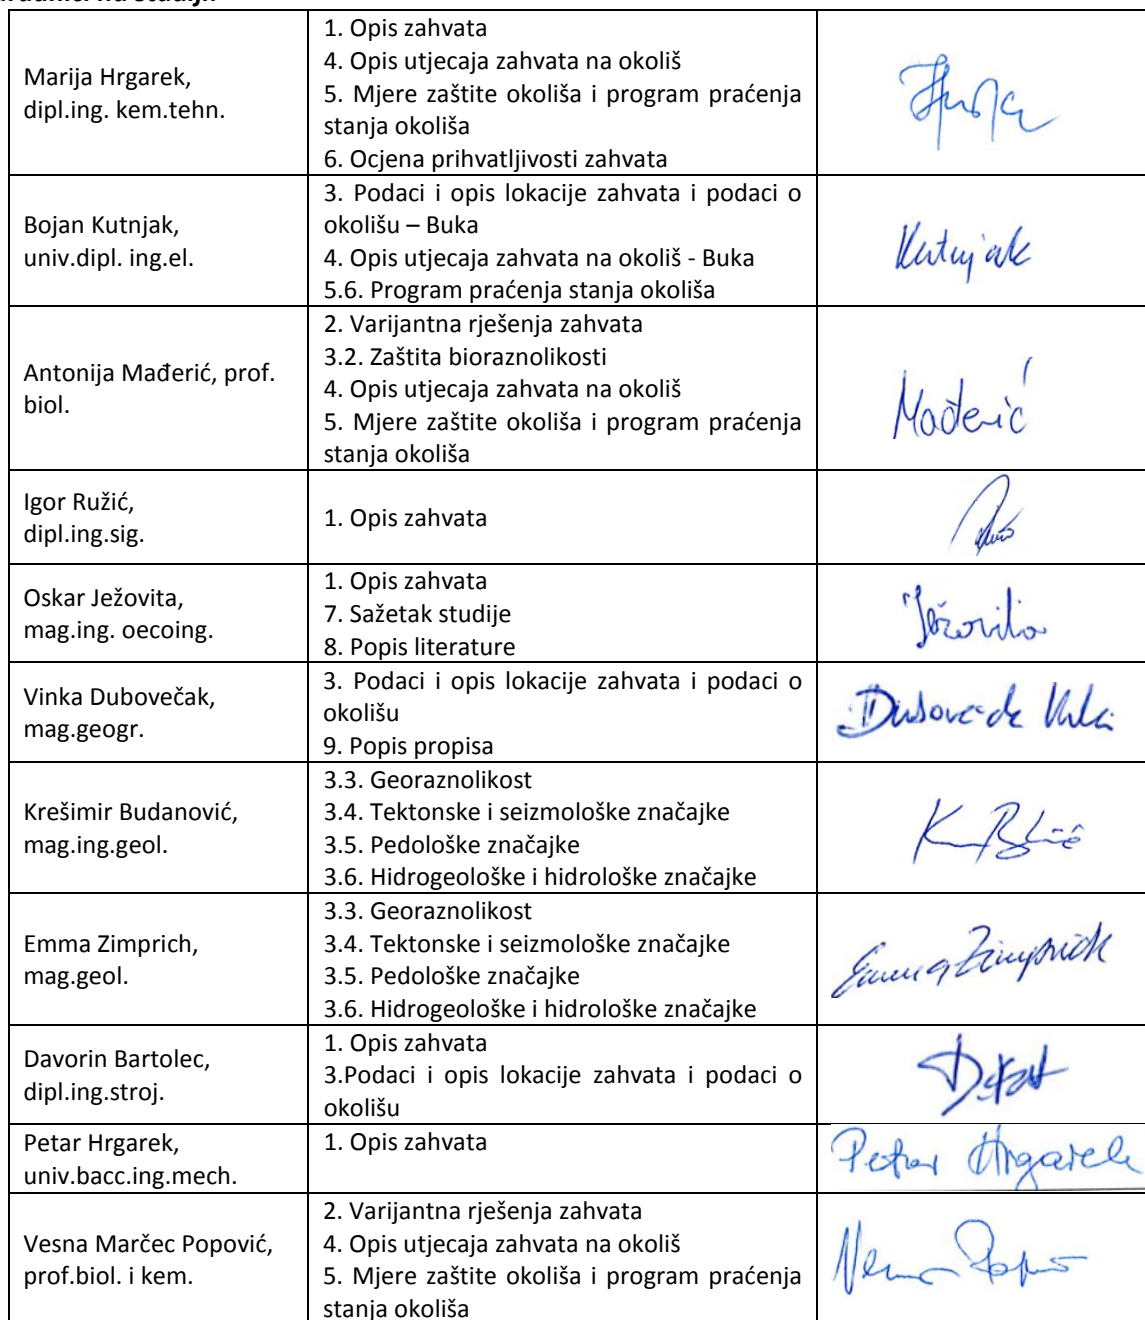 Marija Hrgarek,
dipl.ing. kem.tehn.
1. Opis zahvata
4. Opis utjecaja zahvata na okoliš
5. Mjere zaštite okoliša i program praćenja
stanja okoliša
6. Ocjena prihvatljivosti zahvata
Bojan Kutnjak,
univ.dipl. ing.el.
3. Podaci i opis lokacije zahvata i podaci o
okolišu – Buka
4. Opis utjecaja zahvata na okoliš - Buka
5.6. Program praćenja stanja okoliša
Kutnjak
Antonija Mađerić, prof.
biol.
2. Varijantna rješenja zahvata
3.2. Zaštita bioraznolikosti
4. Opis utjecaja zahvata na okoliš
5. Mjere zaštite okoliša i program praćenja
stanja okoliša
Mađerić
Igor Ružić,
dipl.ing.sig.
1. Opis zahvata
Oskar Ježovita,
mag.ing. oecoing.
1. Opis zahvata
7. Sažetak studije
8. Popis literature
Ježovita
Vinka Dubovečak,
mag.geogr.
3. Podaci i opis lokacije zahvata i podaci o
okolišu
9. Popis propisa
Krešimir Budanović,
mag.ing.geol.
3.3. Georaznolikost
3.4. Tektonske i seizmološke značajke
3.5. Pedološke značajke
3.6. Hidrogeološke i hidrološke značajke
Emma Zimprich,
mag.geol.
3.3. Georaznolikost
3.4. Tektonske i seizmološke značajke
3.5. Pedološke značajke
3.6. Hidrogeološke i hidrološke značajke
Emma Zimprich
Davorin Bartolec,
dipl.ing.stroj.
1. Opis zahvata
3.Podaci i opis lokacije zahvata i podaci o
okolišu
Petar Hrgarek,
univ.bacc.ing.mech.
1. Opis zahvata
Petar Hrgarek
Vesna Marčec Popović,
prof.biol. i kem.
2. Varijantna rješenja zahvata
4. Opis utjecaja zahvata na okoliš
5. Mjere zaštite okoliša i program praćenja
stanja okoliša